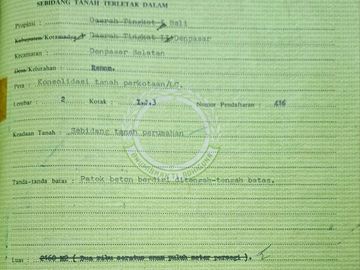 SEBIDANG TANAH TERLETAK DALAM
Propinsi : Daerah Tingkat I Bali
Kabupaten/Kotamadya : Daerah Tingkat II Denpasar
Kecamatan : Denpasar Selatan
Desa/Kelurahan : Renon.
Peta : Konsolidasi tanah perkotaan/LC.
Lembar : 2 Kotak : Nomor Pendaftaran : 616
Keadaan Tanah : Sebidang tanah perumahan
Tanda-tanda batas : Patok beton berdiri ditengah-tengah batas.
Luas : 2160 M2 ( Dua ribu seratus enam puluh meter persegi ).